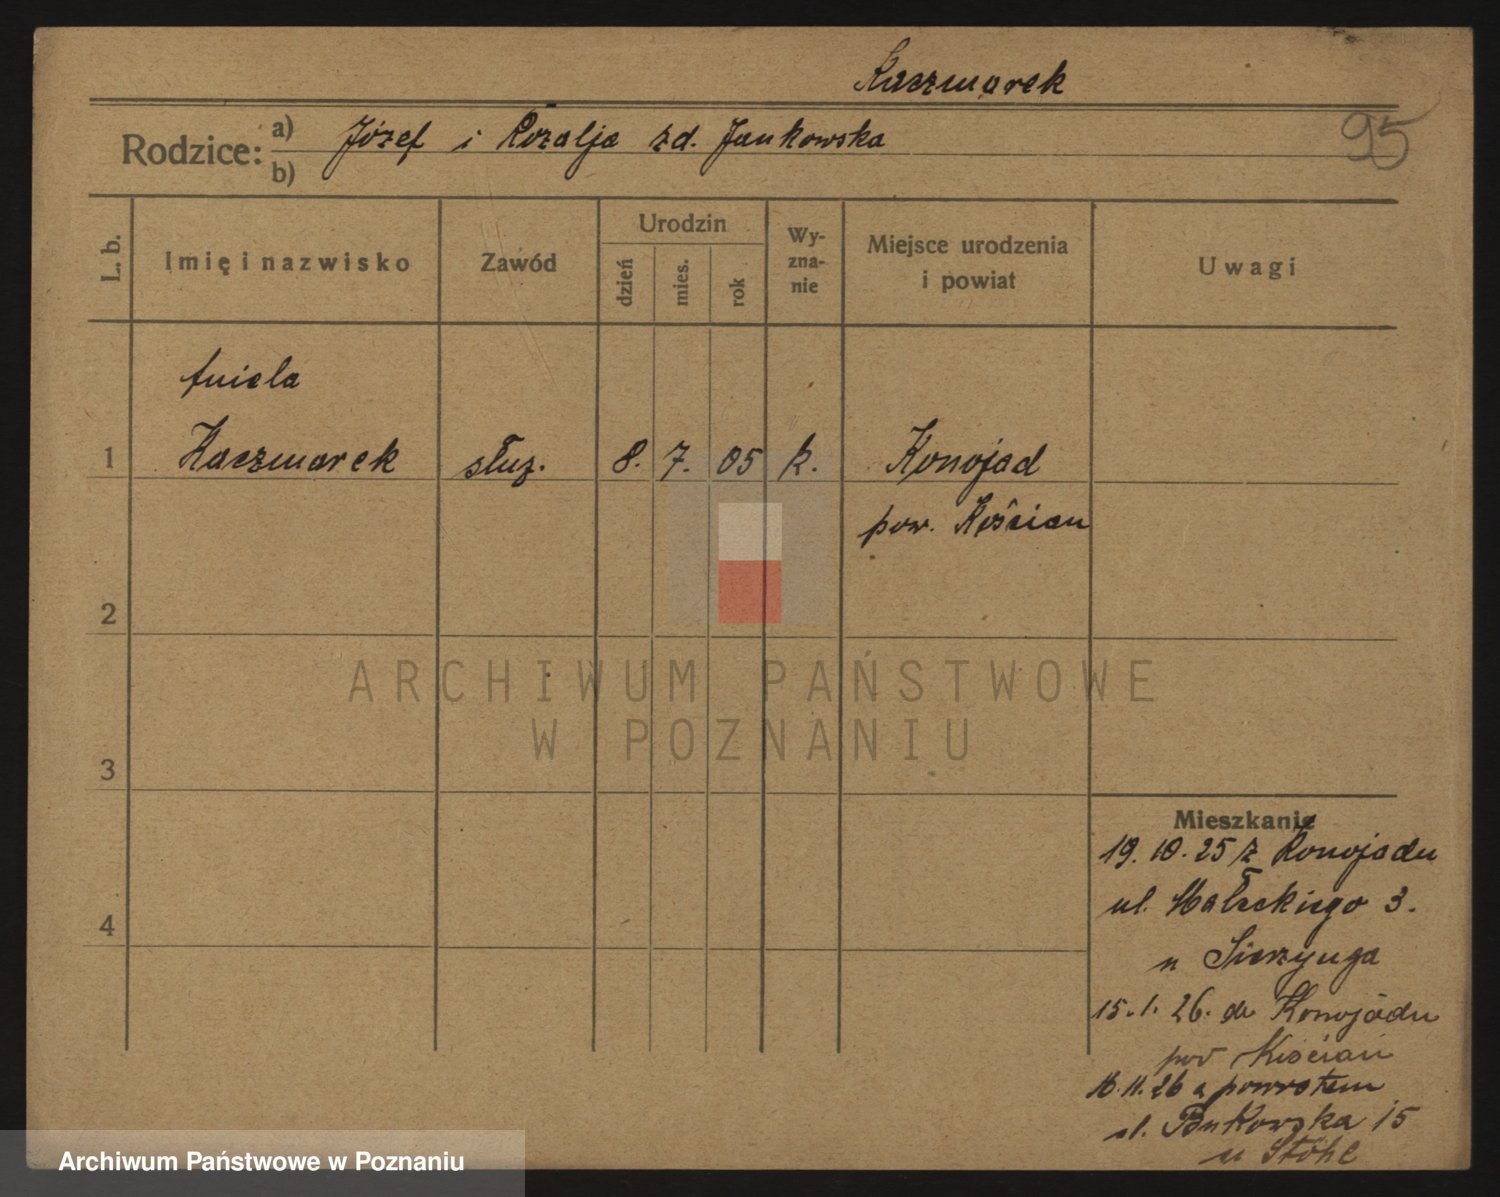 Kaczmarek
Rodzice: a) Józef i Rozalja zd. Jankowska
b)
95
L. b.
Imię i nazwisko
Zawód
Urodzin
dzień
mies.
rok
Wy-
zna-
nie
Miejsce urodzenia
i powiat
Uwagi
Aniela
1 Kaczmarek służ. 8. 7. 05 k. Konojad
pow. Kościan
2
3
4
Mieszkanie
19. 10. 25 z Konojadu
ul. Małeckiego 3.
u
15. 1. 26. do Konojadu
pow Kościan
16. 11. 26 z powrotem
ul. Bukowska 15
u
ARCHIWUM PAŃSTWOWE
W POZNANIU
Archiwum Państwowe w Poznaniu